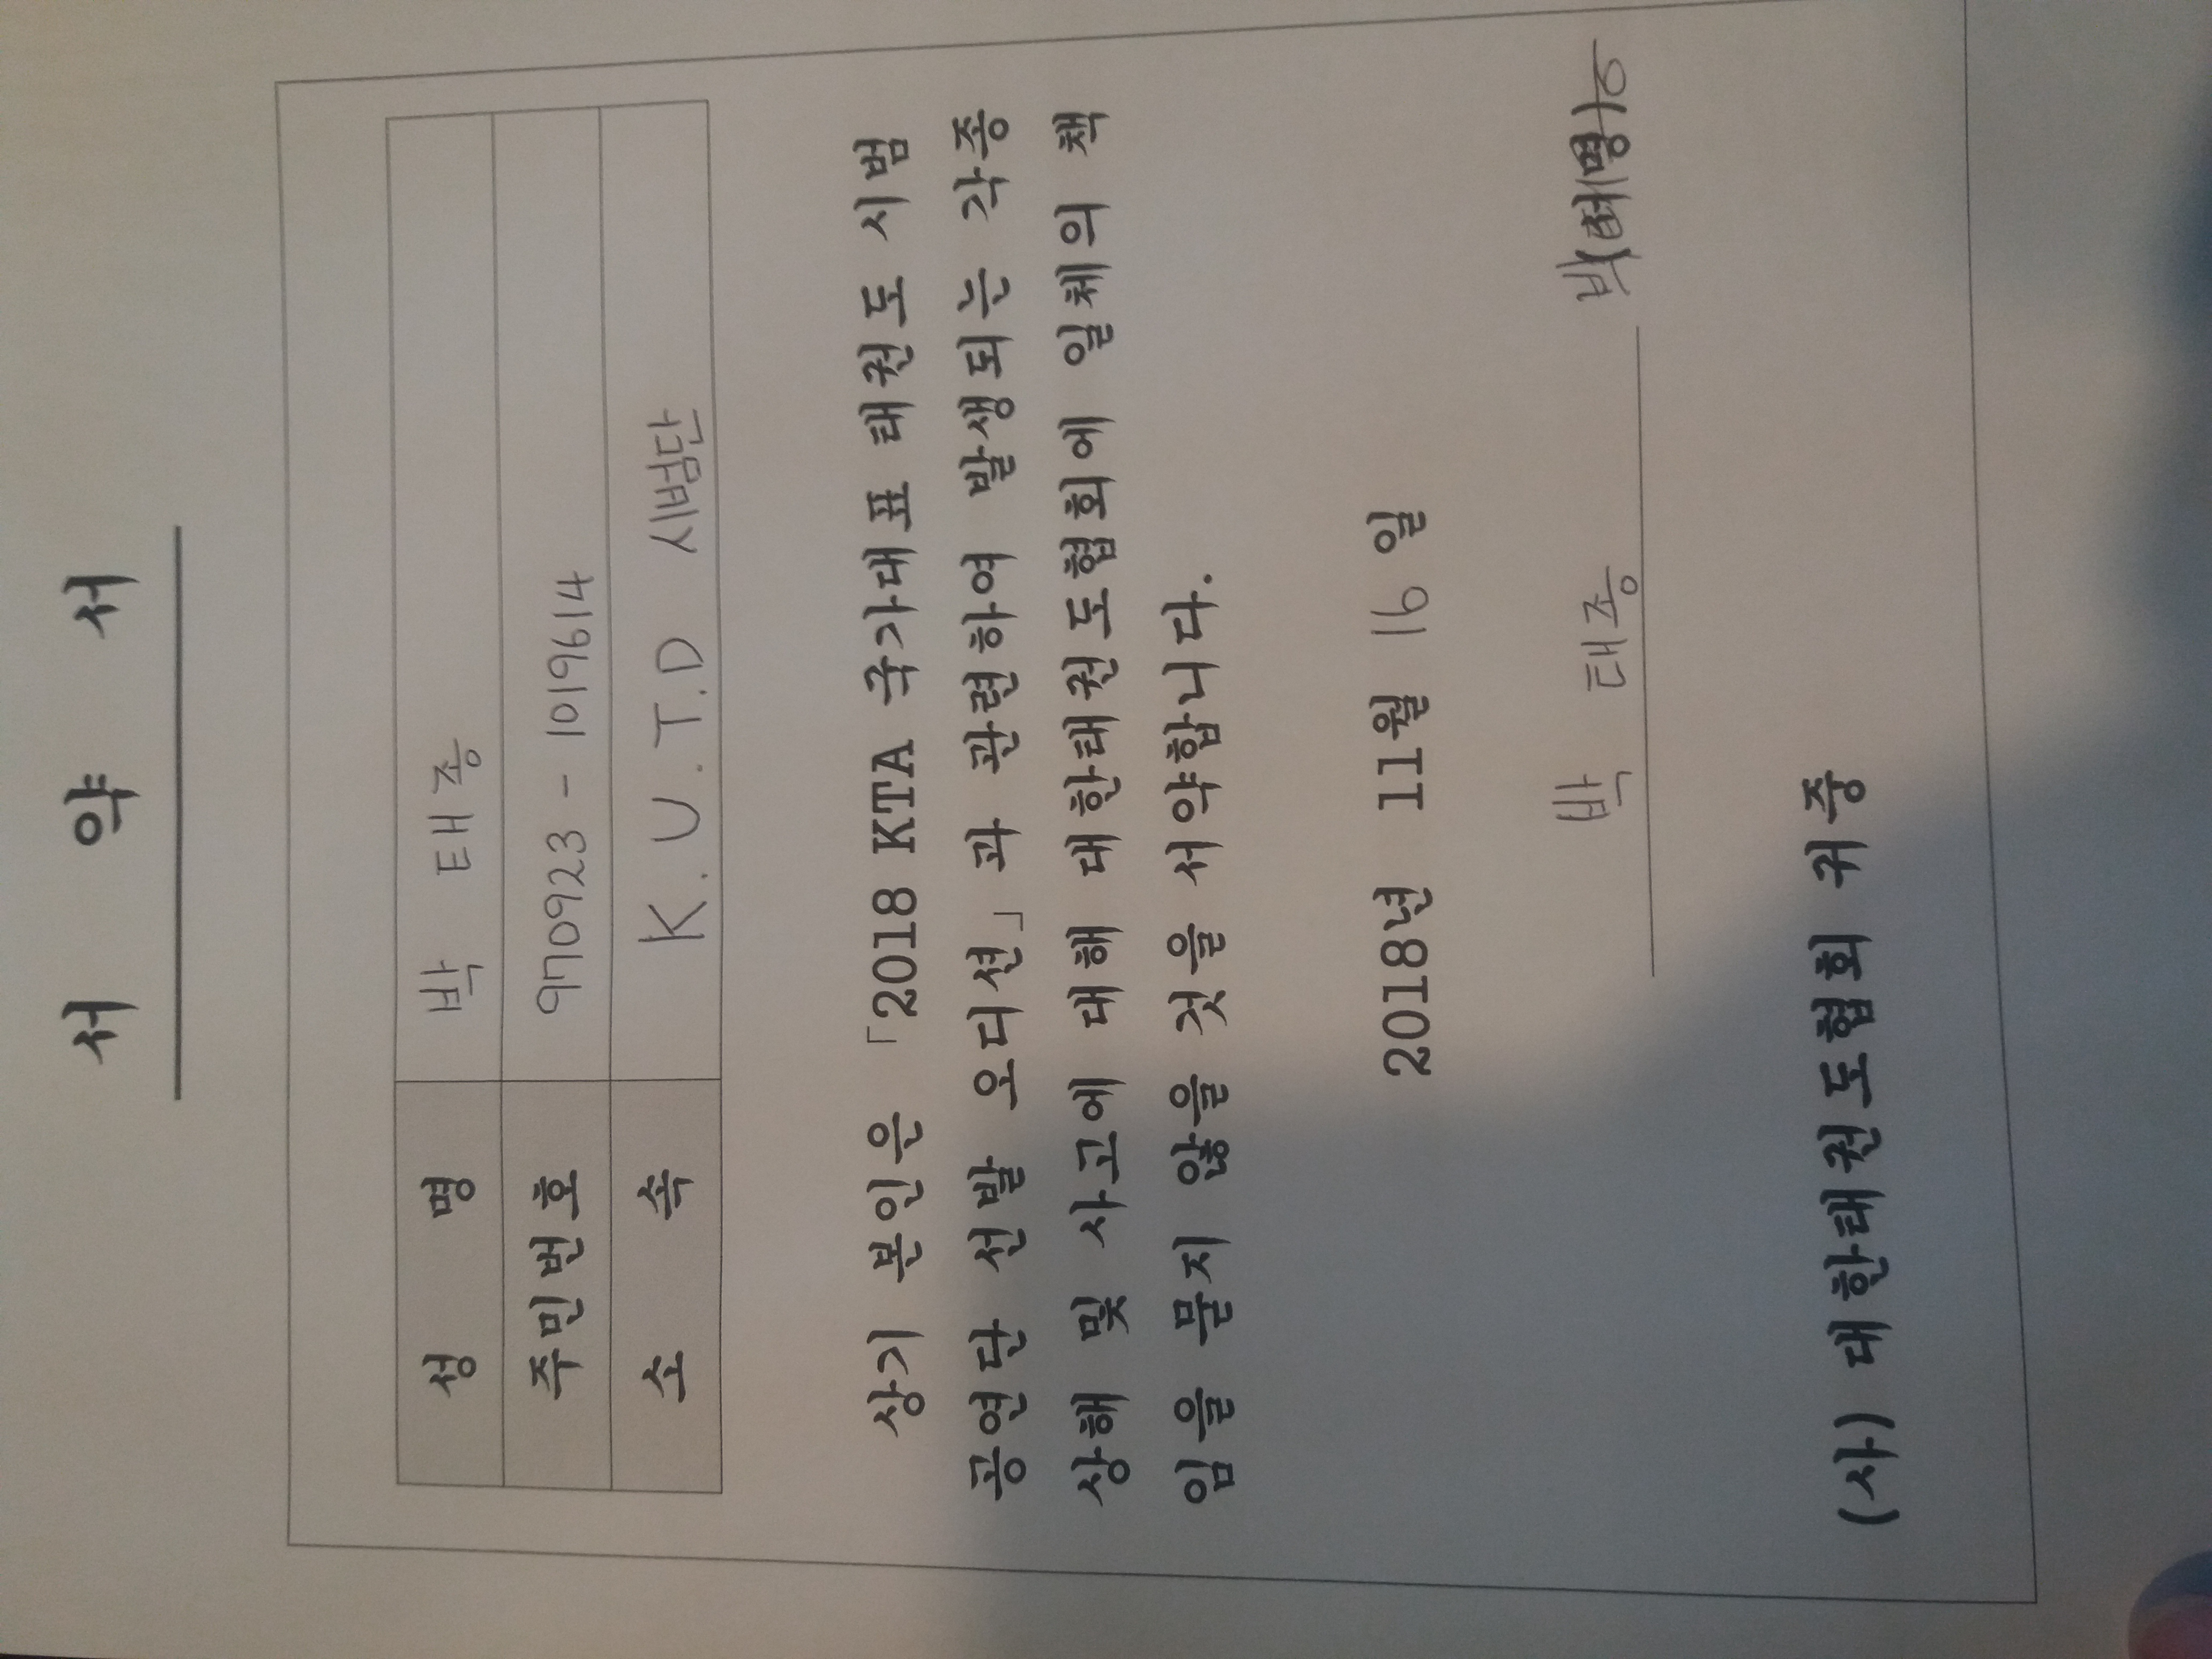 서 약 서
성 명 박 태종
주민번호 970923 - 1019614
소 속 K.U.T.D 시범단
상기 본인은 「2018 KTA 국가대표 태권도 시범
공연단 선발 오디션」과 관련하여 발생되는 각종
상해 및 사고에 대해 대한태권도협회에 일체의 책
임을 묻지 않을 것을 서약합니다.
2018년 11월 16 일
박 태종 박태종
(사) 대한태권도협회 귀중